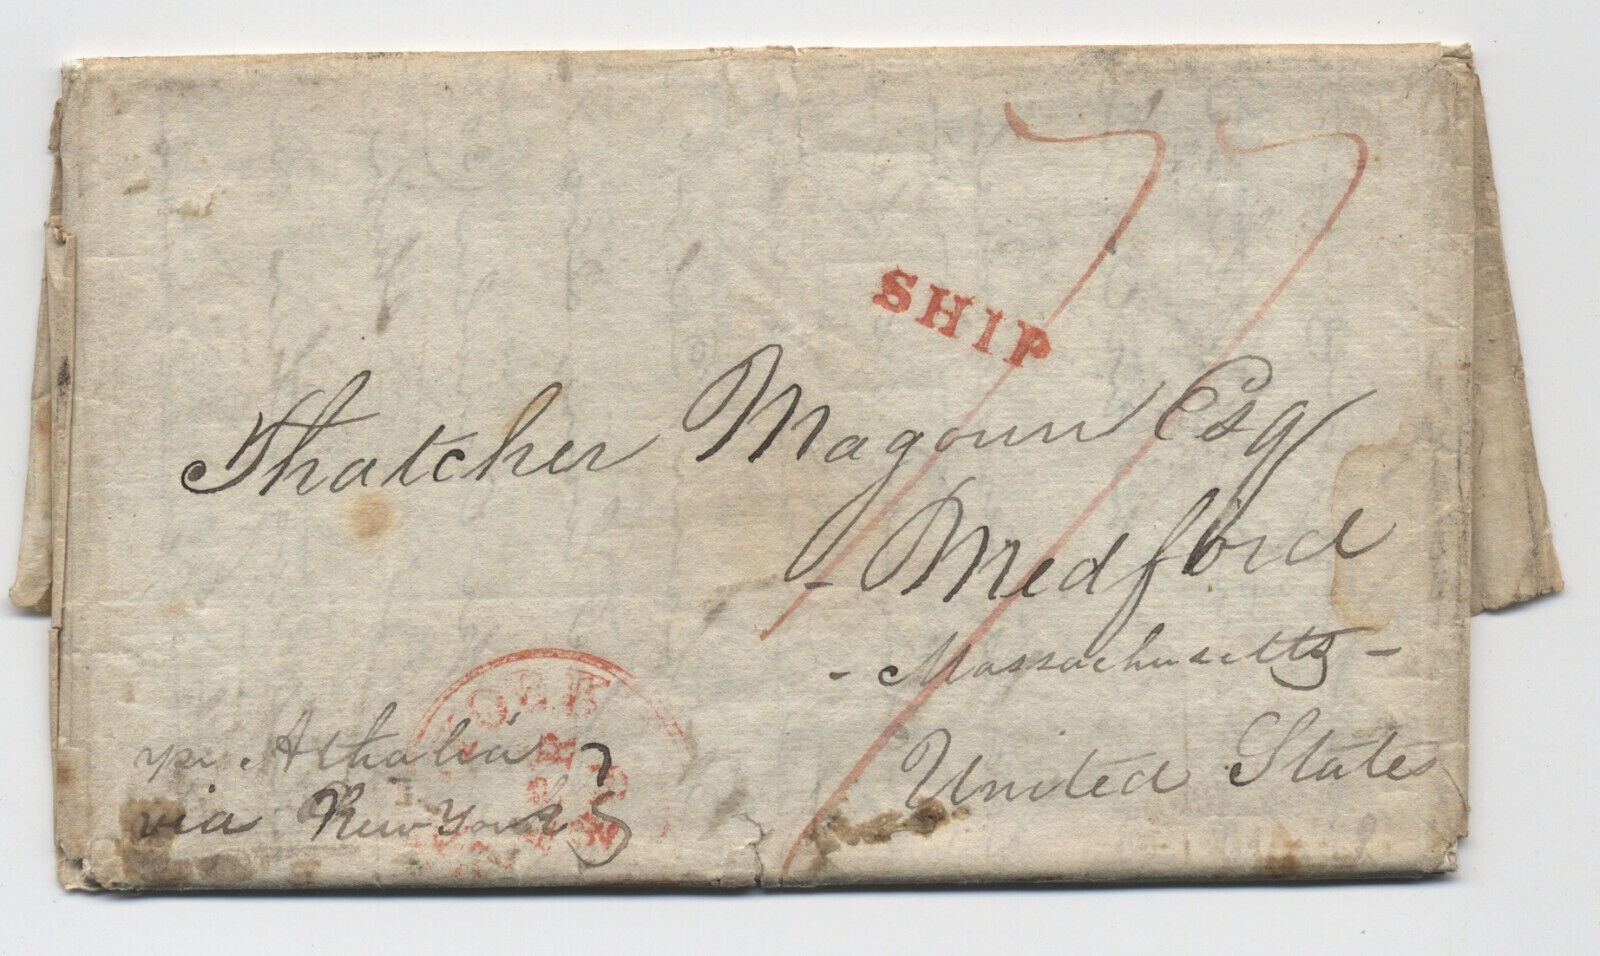 77
SHIP
Thatcher Magoun Esq
- Medford
- Massachusetts -
United States
pr. Athalia
via New York
YORK